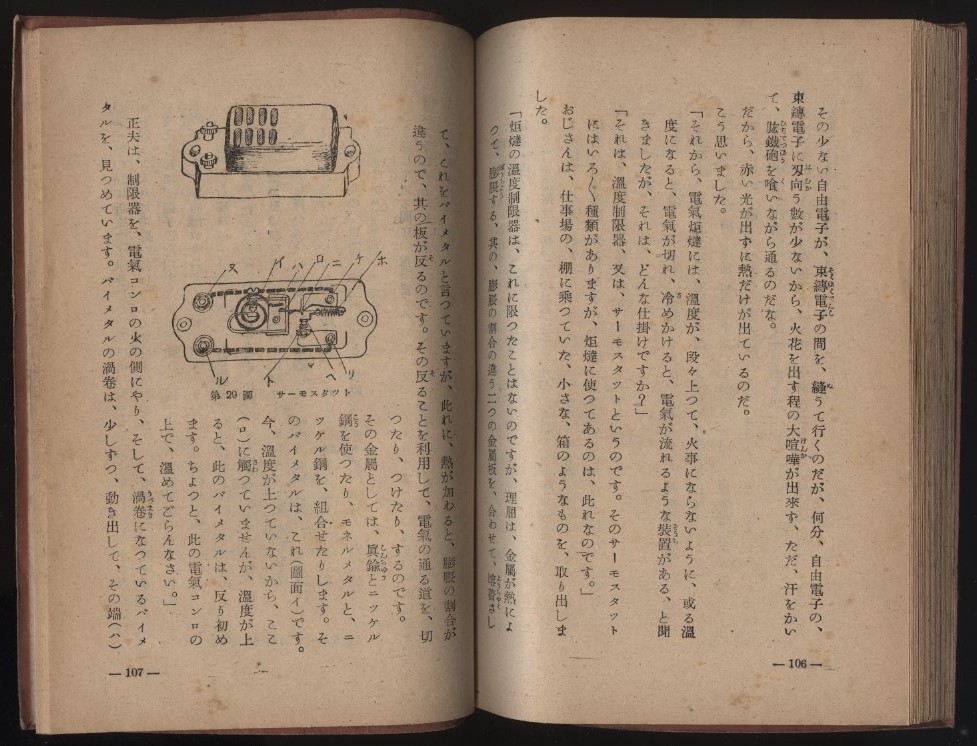 その少ない自由電子が、束縛電子の間を、縫うて行くのだが、何分、自由電子の、
束縛電子に刃向う數が少ないから、火花を出す程の大喧嘩が出來ず、ただ、汗をかい
て、肱鐵砲を喰いながら通るのだな。
だから、赤い光が出ずに熱だけが出ているのだ。
こう思いました。
「それから、電氣炬燵には、溫度が、段々上つて、火事にならないように、或る溫
度になると、電氣が切れ、冷めかけると、電氣が流れるような裝置がある、と聞
きましたが、それは、どんな仕掛けですか？」
「それは、溫度制限器、又は、サーモスタットというのです。そのサーモスタット
にはいろ〱種類がありますが、炬燵に使つてあるのは、此れなのです。」
おじさんは、仕事場の、棚に乘つていた、小さな、箱のようなものを、取り出しま
した。
「炬燵の溫度制限器は、これに限つたことはないのですが、理屈は、金屬が熱によ
つて、膨脹する、其の、膨脹の割合の違う二つの金屬板を、合わせて、鎔着さし
― 106 ―
て、これをバイメタルと言つていますが、此れに、熱が加わると、膨脹の割合が
違うので、其の板が反るのです。その反ることを利用して、電氣の通る道を、切
つたり、つけたり、するのです。
その金屬としては、眞鍮とニッケル
鋼を使つたり、モネルメタルと、ニ
ッケル鋼を、組合せたりします。そ
のバイメタルは、これ(圖面イ)です。
今、溫度が上つていないから、ここ
(ロ)に觸つていませんが、溫度が上
ると、此のバイメタルは、反り初め
ます。ちょつと、此の電氣コンロの
上で、溫めてごらんなさい。」
ヌ イ ハ ロ ニ ケ ホ
ル ト ヘ リ
第29圖 サーモスタット
正夫は、制限器を、電氣コンロの火の側にやり、そして、渦卷になつているバイメ
タルを、見つめています。バイメタルの渦卷は、少しずつ、動き出して、その端(ハ)
― 107 ―